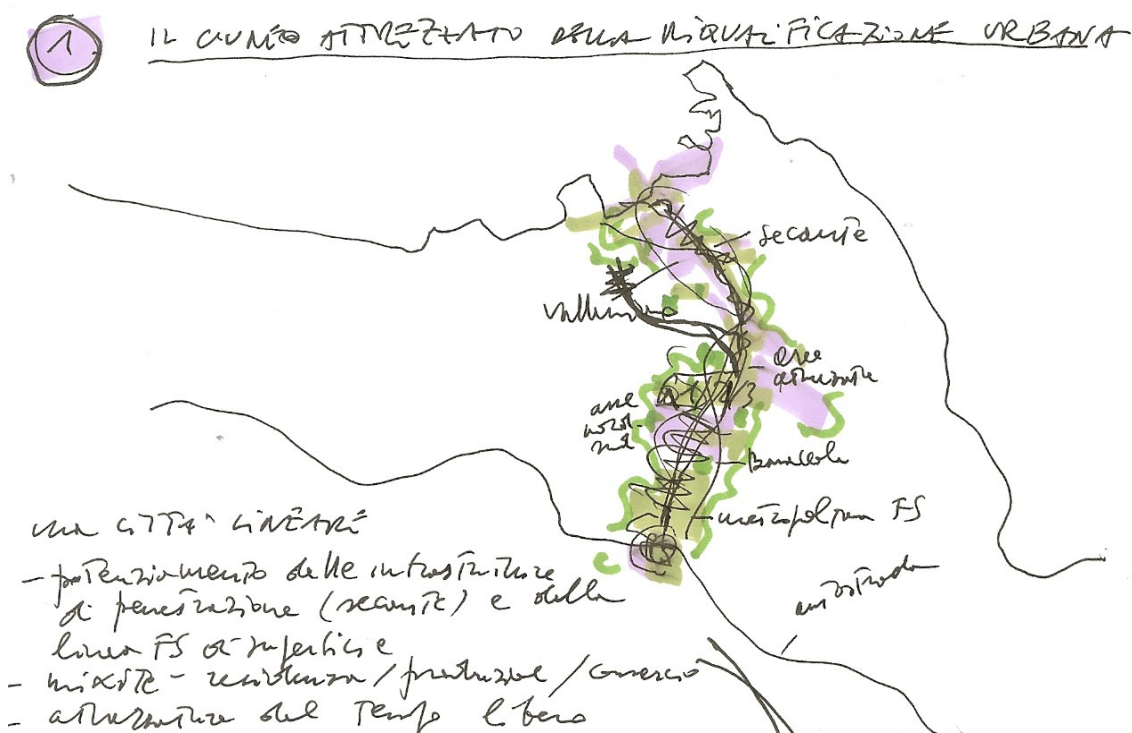 1
IL CUNEO ATTREZZATO DELLA RIQUALIFICAZIONE URBANA
secante
Vallemiano
aree attrezzate
1/2/3
asse nord-sud
Baraccola
metropolitana FS
autostrada
UNA CITTA' LINEARE
- potenziamento delle infrastrutture
di penetrazione (secante) e della
linea FS di superficie
- mixité - residenza/produzione/commercio
- attrezzature del tempo libero